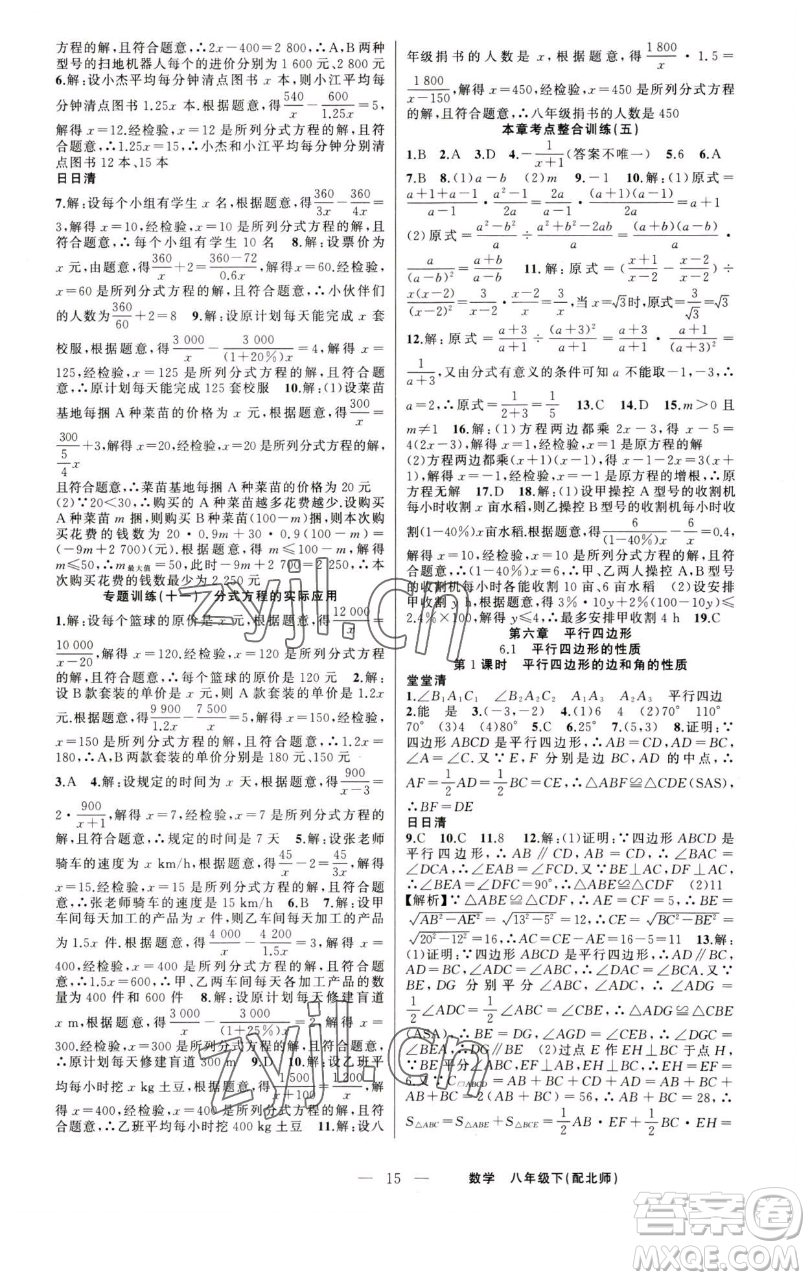 方程的解,且符合题意,∴2x-400=2 800,∴A,B两种
型号的扫地机器人每个的进价分别为1 600元、2 800元
6.解:设小杰平均每分钟清点图书x本,则小江平均每分
钟清点图书1.25x本.根据题意,得540/x-600/1.25x=5,
解得x=12.经检验,x=12是所列分式方程的解,且符
合题意,∴1.25x=15,∴小杰和小江平均每分钟分别清
点图书12本、15本
日日清
7.解:设每个小组有学生x名,根据题意,得360/3x-360/4x=
3,解得x=10,经检验,x=10是所列分式方程的解,且
符合题意,∴每个小组有学生10名 8.解:设票价为
x元,由题意,得360/x+2=(360-72)/0.6x,解得x=60.经检验,
x=60是所列分式方程的解,且符合题意,∴小伙伴们
的人数为360/60+2=8 9.解:设原计划每天能完成x套
校服,根据题意,得3 000/x-3 000/(1+20%)x=4,解得x=
125,经检验,x=125是所列分式方程的解,且符合题
意,∴原计划每天能完成125套校服 10.解:(1)设菜苗
基地每捆A种菜苗的价格为x元,根据题意,得300/x=
300/(5/4 x)+3,解得x=20,经检验,x=20是所列分式方程的解,
且符合题意,∴菜苗基地每捆A种菜苗的价格为20元
(2)∵20<30,∴购买的A种菜苗越多花费越少.设购买
A种菜苗m捆,则购买B种菜苗(100-m)捆,则本次购
买花费的钱数为20·0.9m+30·0.9(100-m)=
(-9m+2 700)(元),根据题意,得m≤100-m,解得
m≤50,∴m最大值=50,∴-9m+2 700=2 250,∴本
次购买花费的钱数最少为2 250元
专题训练(十一) 分式方程的实际应用
1.解:设每个篮球的原价是x元,根据题意,得12 000/x=
10 000/(x-20),解得x=120,经检验,x=120是所列分式方程的
解,且符合题意,∴每个篮球的原价是120元 2.解:
设B款套装的单价是x元,则A款套装的单价是1.2x
元,由题意,得9 900/1.2x-7 500/x=5,解得x=150,经检验,
x=150是所列分式方程的解,且符合题意,∴1.2x=
180,∴A,B两款套装的单价分别是180元、150元
3.A 4.解:设规定的时间为x天,根据题意,得900/(x-3)=
2·900/(x+1),解得x=7,经检验,x=7是所列分式方程的
解,且符合题意,∴规定的时间是7天 5.解:设张老师
骑车的速度为x km/h,根据题意,得45/x-45/3x=2,解得
x=15,经检验,x=15是所列分式方程的解,且符合题
意,∴张老师骑车的速度是15 km/h 6.B 7.解:设甲
车间每天加工的产品为x件,则乙车间每天加工的产品
为1.5x件,根据题意,得4 000/x-4 200/1.5x=3,解得x=
400,经检验,x=400是所列分式方程的解,且符合题
意,∴1.5x=600,∴甲、乙两车间每天各加工产品的数
量为400件和600件 8.解:设原计划每天修建盲道
x m,根据题意,得3 000/x-3 000/(1+25%)x=2,解得x=
300.经检验,x=300是所列分式方程的解,且符合题意,
∴原计划每天修建盲道300 m 9.D 10.解:设乙班平
均每小时挖x kg土豆,根据题意,得1 500/(x+100)=1 200/x,解得
x=400,经检验,x=400是所列分式方程的解,且符合题
意,∴乙班平均每小时挖400 kg土豆 11.解:设八
年级捐书的人数是x,根据题意,得1 800/x·1.5=
1 800/(x-150),解得x=450,经检验,x=450是所列分式方程
的解,且符合题意,∴八年级捐书的人数是450
本章考点整合训练(五)
1.B 2.A 3.D 4.-1/(x+1)(答案不唯一) 5.6 6.A
7.B 8.(1)a+b (2)m 9.- 10.解:(1)原式=
(a+1+a-1)/(a-1)·(a²-1)/2a=2a/(a-1)·(a+1)(a-1)/2a=a+1
(2)原式=(a²-b²)/a÷(a²+b²-2ab)/a=(a+b)(a-b)/a·
a/(a-b)²=(a+b)/(a-b) 11.解:原式=((x+1)/(x-2)-(x-2)/(x-2))÷
x(x-2)/(x-2)²=3/(x-2)·(x-2)/x=3/x,当x=√3时,原式=3/√3=√3
12.解:原式=(a+3)/(a+1)÷(a+3)²/(a+1)=(a+3)/(a+1)·(a+1)/(a+3)²=
1/(a+3),又由分式有意义的条件可知a不能取-1,-3,∴
a=2,原式=1/(2+3)=1/5 13.C 14.D 15.m>0且
m≠1 16.解:(1)方程两边都乘2x-3,得x-5=
4(2x-3),解得x=1,经检验,x=1是原方程的解
(2)方程两边都乘(x-1)(x+2),得x(x+2)-(x+
2)(x-1)=3,解得x=1,经检验,x=1是原方程的增根,∴原
方程无解 17.D 18.解:(1)设甲操控A型号的收割机
每小时收割x亩水稻,则乙操控B型号的收割机每小时收
割(1-40%)x亩水稻.根据题意,得6/(1-40%)x-6/x=0.4,
解得x=10,经检验,x=10是所列分式方程的解,且符合
题意,∴(1-40%)x=6,∴甲、乙两人操控A,B型号的
收割机每小时各能收割10亩、6亩水稻 (2)设安排
甲收割y h,根据题意,得3%×10y+2%×6×(100-10y)/6≤
2.4%×100,解得y≤4,∴最多安排甲收割4 h 19.C
第六章 平行四边形
6.1 平行四边形的性质
第1课时 平行四边形的边和角的性质
堂堂清
1.∠B₁A₁C₁ ∠B₅A₅C₅ A₁A₅ A₃A₅ 平行四边
2.能 是 3.(-3,-2) 4.(1)6 4 (2)70° 110°
70° (3)4 (4)80° 5.C 6.25° 7.(5,3) 8.证明:∵
四边形ABCD是平行四边形,∴AB=CD,AD=BC,
∠A=∠C.又∵E,F分别是边BC,AD的中点,∴
AF=1/2AD=1/2BC=CE,∴△ABF≌△CDE(SAS),
∴BF=DE
日日清
9.C 10.C 11.8 12.解:(1)证明:∵四边形ABCD是
平行四边形,∴AB∥CD,AB=CD,∴∠BAC=
∠DCA.又∵BE⊥AC,DF⊥AC,∴∠BEA=
∠DFC=90°,∴△ABE≌△CDF(AAS) (2)11
【解析】∵△ABE≌△CDF,∴AE=CF=5,∴BE=
√(AB²-AE²)=√(13²-5²)=12,∴CE=√(BC²-BE²)=
√(20²-12²)=16,∴AC=AE+CE 13.解:
(1)证明:∵四边形ABCD是平行四边形,∴∠ABC=
DG分别平分∠ABC,∠ADC,∴∠CDG=
1/2∠ADC=1/2∠ABC=∠ABE,∴△ABE≌△CDG
(ASA),∴BE=DG,∠AEB=∠CGD,∴∠DGC=
∠BEA,∴DG∥BE (2)过点E作EH⊥BC于点H,
∵BE平分∠ABC,EF⊥AB,EH⊥BC,∴EH=EF=
6.又∵C▱ABCD=56,∴AB+BC=28,∴
S△ABC=S△ABE+S△BCE=1/2AB·EF+1/2BC·EH=
— 15 — 数学 八年级下(配北师)
zyjl.cn
zyjl.cn
答案圈
MXQE.COM